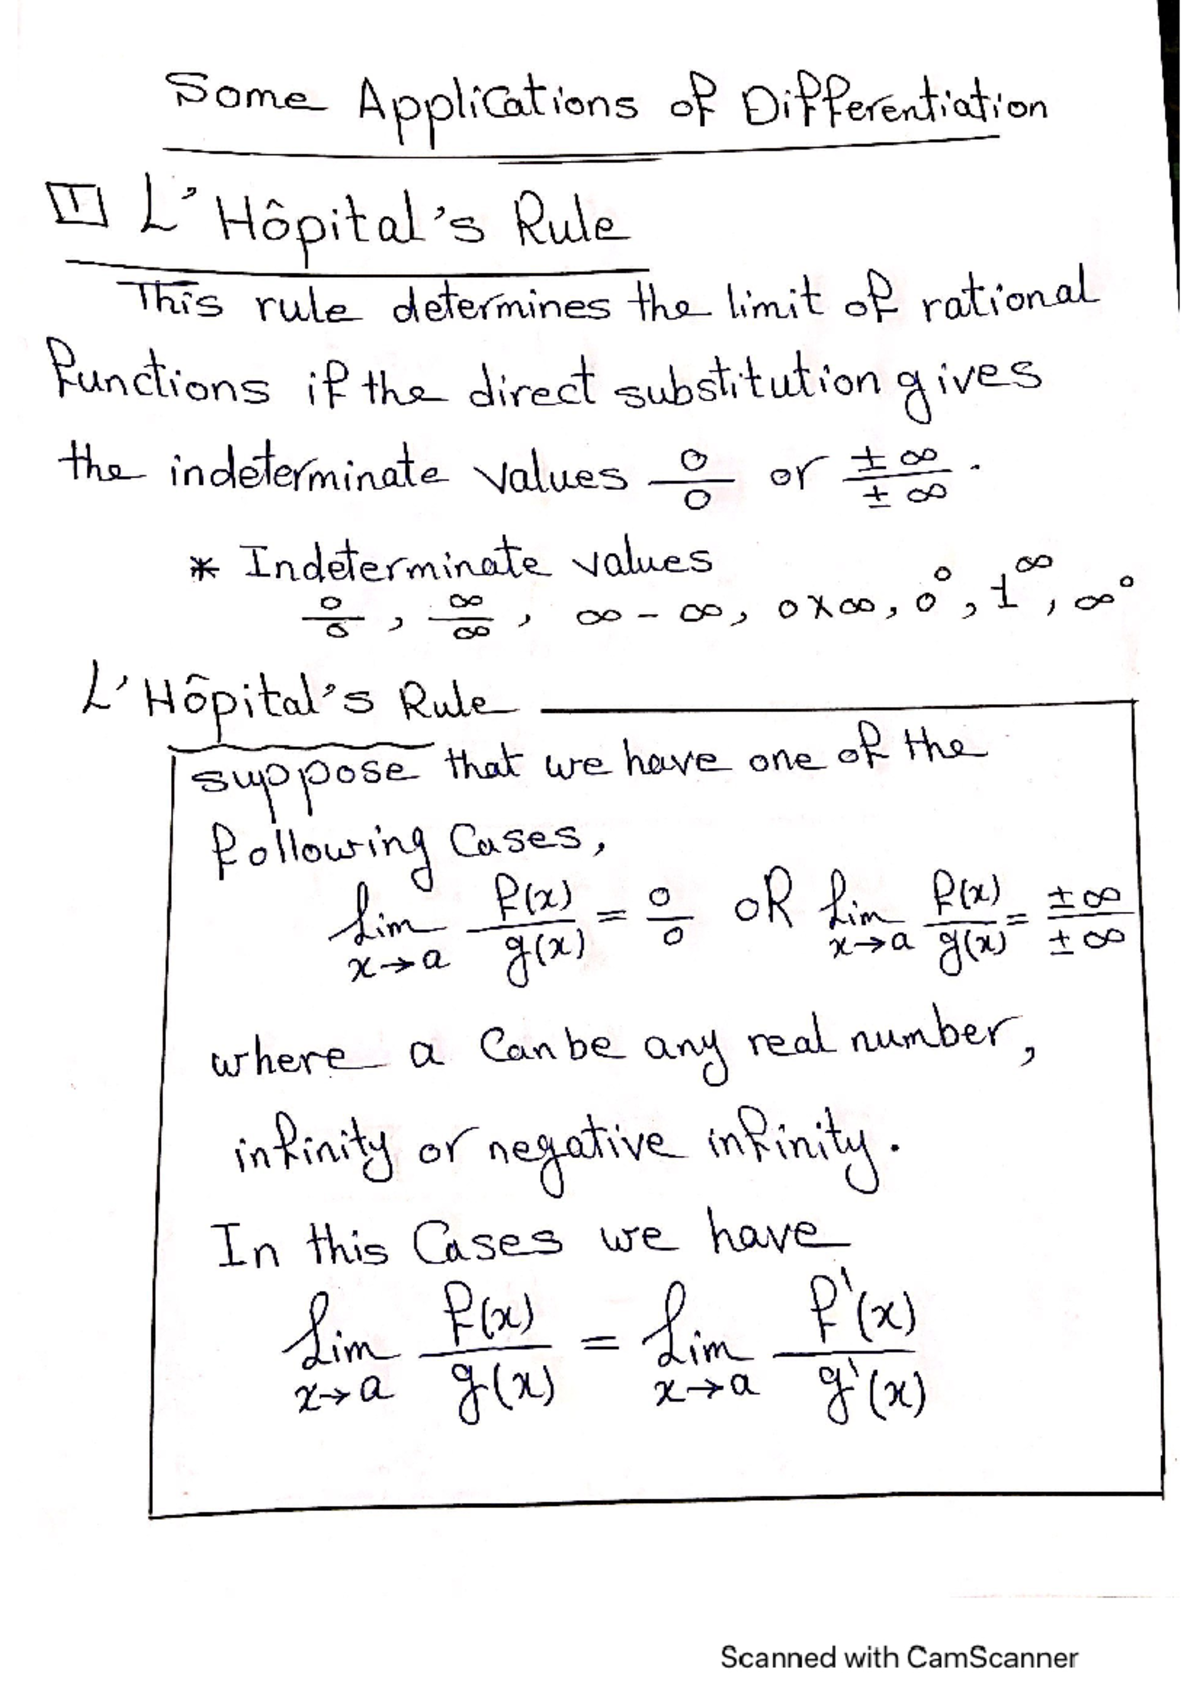 Some Applications of Differentiation
1 L'Hôpital's Rule
This rule determines the limit of rational
functions if the direct substitution gives
the indeterminate values 0/0 or ±∞/±∞.
* Indeterminate values
0/0, ∞/∞, ∞ - ∞, 0×∞, 0^0, 1^∞, ∞^0
L'Hôpital's Rule
suppose that we have one of the
following Cases,
Lim x→a f(x)/g(x) = 0/0 OR Lim x→a f(x)/g(x) = ±∞/±∞
where a Can be any real number,
infinity or negative infinity.
In this Cases we have
Lim x→a f(x)/g(x) = Lim x→a f'(x)/g'(x)
Scanned with CamScanner